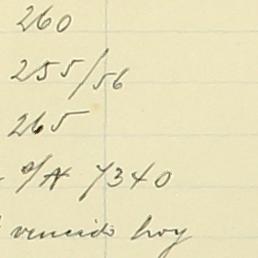 260
255/56
265
o/A 7340
vencido hoy